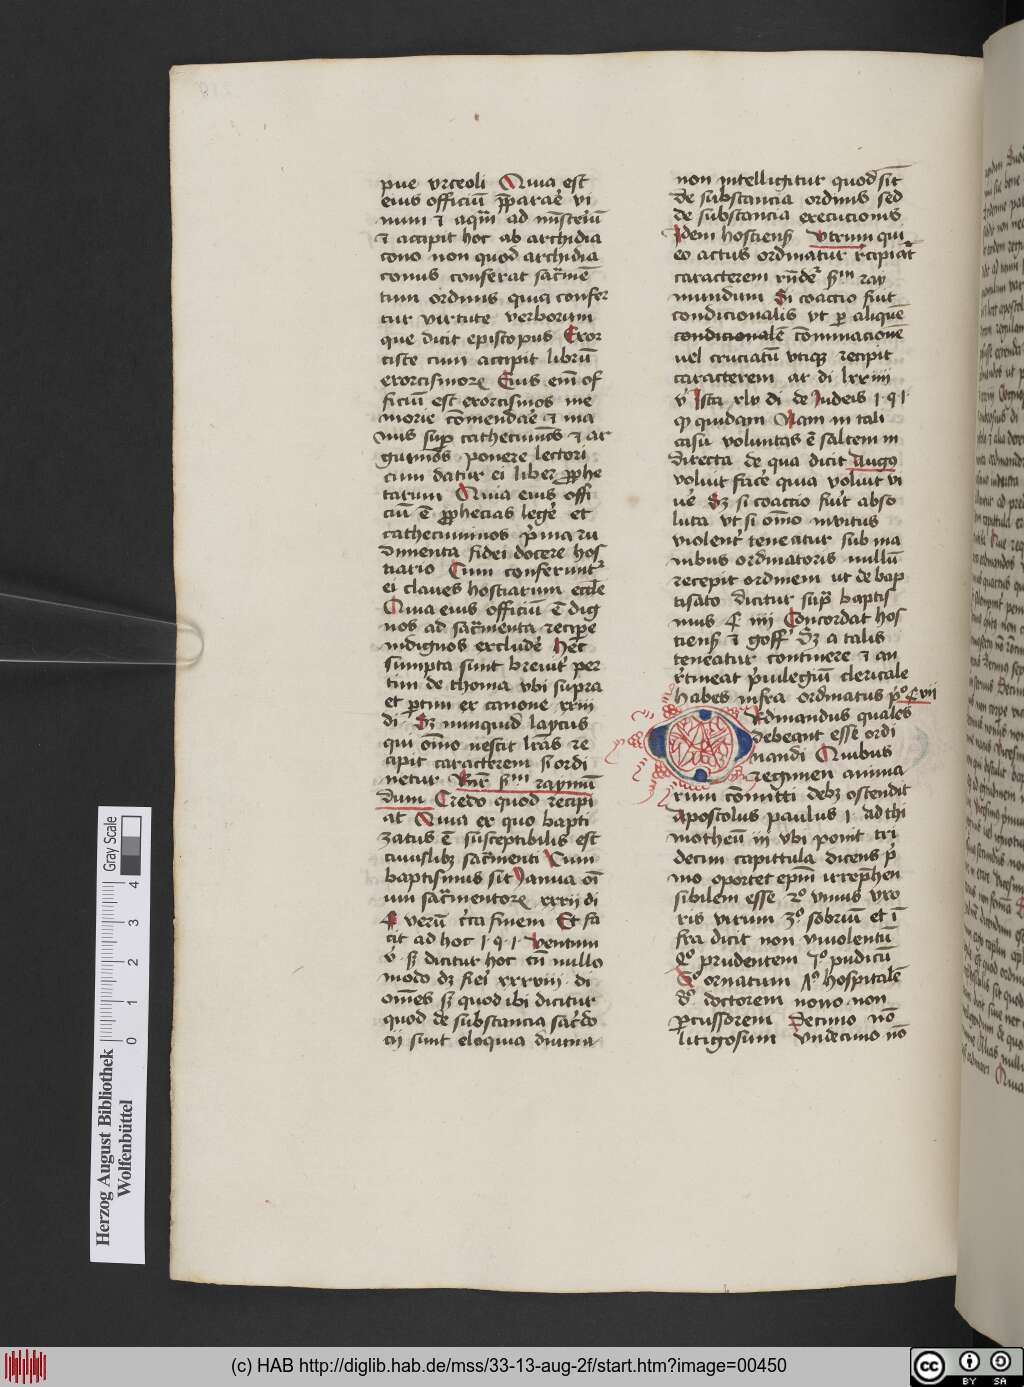 pue vrceoli Quia est
eius officiū p̄parare vi
num ⁊ aquā ad mīsteriū
⁊ accipit hoc ab archidia
cono non quod archidia
conus conferat sacrame
tum ordinis quia confer
tur virtute verborum
que dicit episcopus Exor
ciste cum accipit librū
exorcismorꝝ Cuis em̄ of
ficiū est exorcismos me
morie cōmendare ⁊ ma
nus suꝑ cathecuminos ⁊ ar
guminos ponere lectori
cum datur ei liber ꝓphe
tarum Quia eius offi
ciū ē ꝓphecias legere et
cathecuminos prima ru
dimenta fidei docere hos
tiario Cum conferuntur
ei claues hostiarum eccle
Quia eius officiū ē dig
nos ad sacramenta recipere
indignos excludere hec
sumpta sunt breuiter per
tim de thoma vbi supra
et partim ex canone xxiii
di Sꝫ nunquid laycus
qui omnino nescit lr̄as re
cipit caracterem si ordi
netur Rn̄r sm̄ raymū
dum Credo quod recipi
at Quia ex quo bapti
zatus ē susceptibilis est
cuiuslibꝫ sacramenti Cum
baptismus sit Janua oī
um sacramentorꝝ xxxii di
§ verū circa finem Et fa
cit ad hoc i q i ventum
v sꝫ dicitur hoc cū nullo
modo dꝫ fieri xxxviii di
om̄es sꝫ quod ibi dicitur
quod de substancia sacerdo
cij sunt eloquia diuina
non intelligitur quod sit
de substancia ordinis sed
de substancia execucionis
Idem hostiens Vtrum qui
eo actus ordinatur recipiat
caracterem rn̄de sm̄ ray
mundum Si coactio fiut
condicionalis vt ꝑ aliquē
condicionalē cōminacionē
uel cruciatū vtiqꝫ recipit
caracterem ar di lxxiiii
v Ista xlv di de Judeis i q i
ꝙ quidam Nam in tali
casu voluntas ē saltem in
directa de qua dicit Augꝰ
voluit facere quia voluit vi
uere Sꝫ si coactio fiut abso
luta vt si omnino inuitus
violenter teneatur sub ma
nibus ordinatoris nullū
recepit ordinem ut de bap
tisato dicitur supra baptis
mus § iiii Concordat hos
tiens ⁊ goff Sꝫ a talis
teneatur continere ⁊ an
rertineat priuilegiū clericale
habes infra ordinatus pº § vii
Ordinandus quales
debeant esse ordi
nandi Quibus
regimen anima
rum cōmitti debꝫ ostendit
Apostolus paulus i ad thi
motheū iii vbi ponit tri
decim capittula dicens p̄
mo oportet epm̄ irreprehen
sibilem esse 2º vnius vxo
ris virum 3º sobriū et ī
fra dicit non vinolentū
4º prudentem 5º pudicū
6º ornatum 7º hospitalē
8º doctorem nono non
percussorem Decimo nō
litigosum vndecimo nō
Herzog August Bibliothek
Wolfenbüttel
0 1 2 3 4
Gray Scale
(c) HAB http://diglib.hab.de/mss/33-13-aug-2f/start.htm?image=00450
cc BY SA